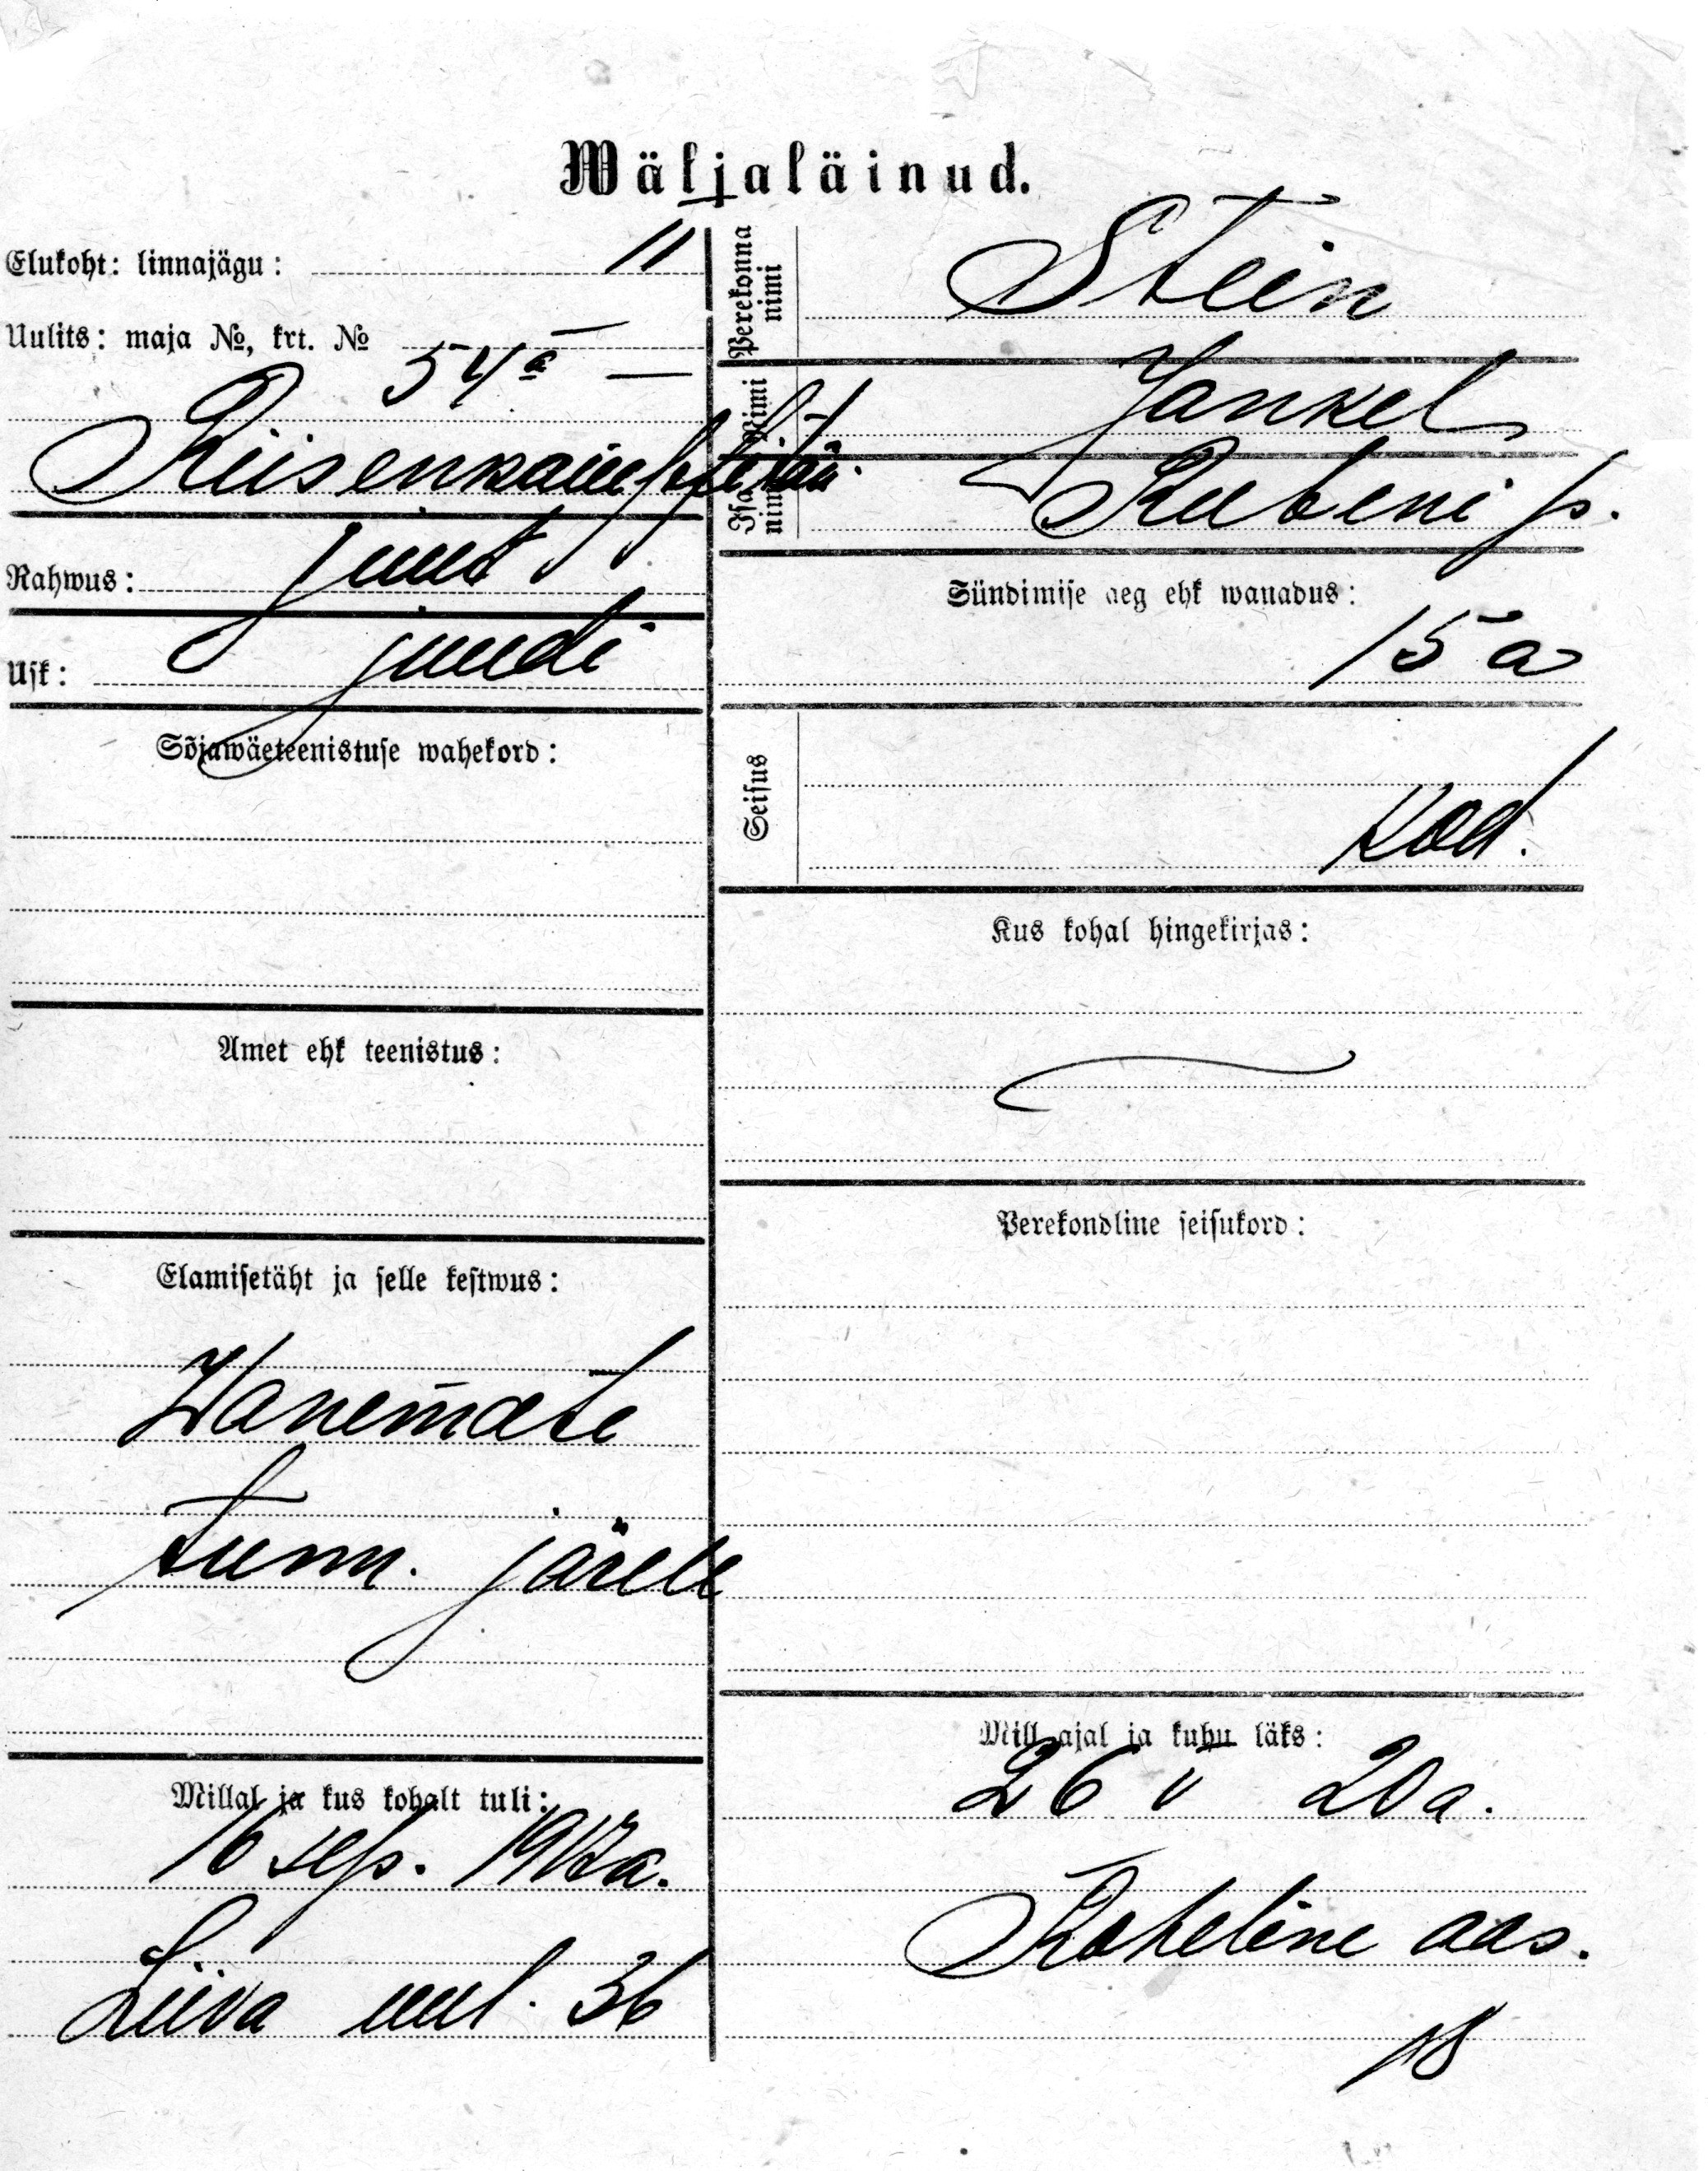 Wäljaläinud.
Elukoht: linnajägu: 11
Uulits: maja №, krt. №
54a —
Rahwus: juut
Usk: juudi
Sõjawäeteenistuse wahekord:
Amet ehk teenistus:
Elamisetäht ja selle kestwus:
Wanemate
tunn. järele
Millal ja kus kohalt tuli:
16 sep.
Liiva uul. 36
Perekonna nimi Stein
Nimi Jankel
Isa nimi Rubeni p.
Sündimise aeg ehk wanadus:
15 a
Seisus
kod.
Kus kohal hingekirjas:
Perekondline seisukord:
Mill ajal ja kuhu läks:
26 V 20 a.
Roheline aas.
18